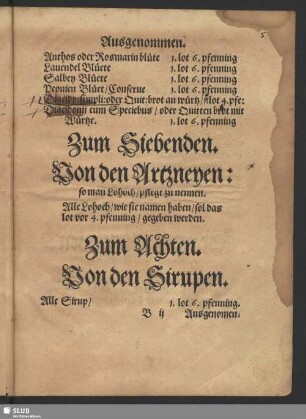 5
Ausgenommen.
Anthos oder Rosmarin blüte 1. lot 6. pfenning
Lauendel Blüete 1. lot 6. pfenning
Salbey Blüete 1. lot 6. pfenning
Peonien Blüet/ Conserue 1. lot 6. pfenning
simpli: oder Quit: brot an würtz/ 1 lot 4. pfe:
cum Speciebus / oder Quitten brot mit
Würtze. 1. lot 6. pfenning
Zum Siebenden.
Von den Artzneyen:
so man Lohoch/ pflegt zu nennen.
Alle Lohoch/ wie sie namen haben/ sol das
lot vor 4. pfenning/ gegeben werden.
Zum Achten.
Von den Sirupen.
Alle Sirup/ 1. lot 6. pfenning.
B ij Ausgenomen:
SLUB